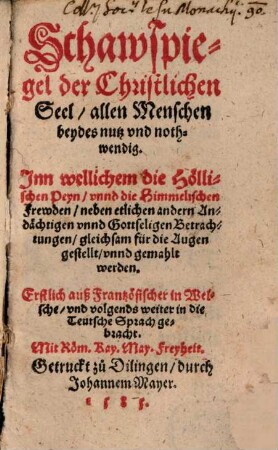 Coll. Soc.tis Jesu Monachij. 90.
Schawspie-
gel der Christlichen
Seel / allen Menschen
beydes nutz vnd noth-
wendig.
Inn wellichem die Hölli-
schen Peyn / vnnd die Himmelischen
Frewden / neben etlichen andern An-
dächtigen vnnd Gottseligen Betrach-
tungen / gleichsam für die Augen
gestellt / vnnd gemahlt
werden.
Erstlich auß Frantzösischer in Wel-
sche / vnd volgends weiter in die
Teutsche Sprach ge-
bracht.
Mit Röm. Kay. May. Freyheit.
Getruckt zů Dilingen / durch
Johannem Mayer.